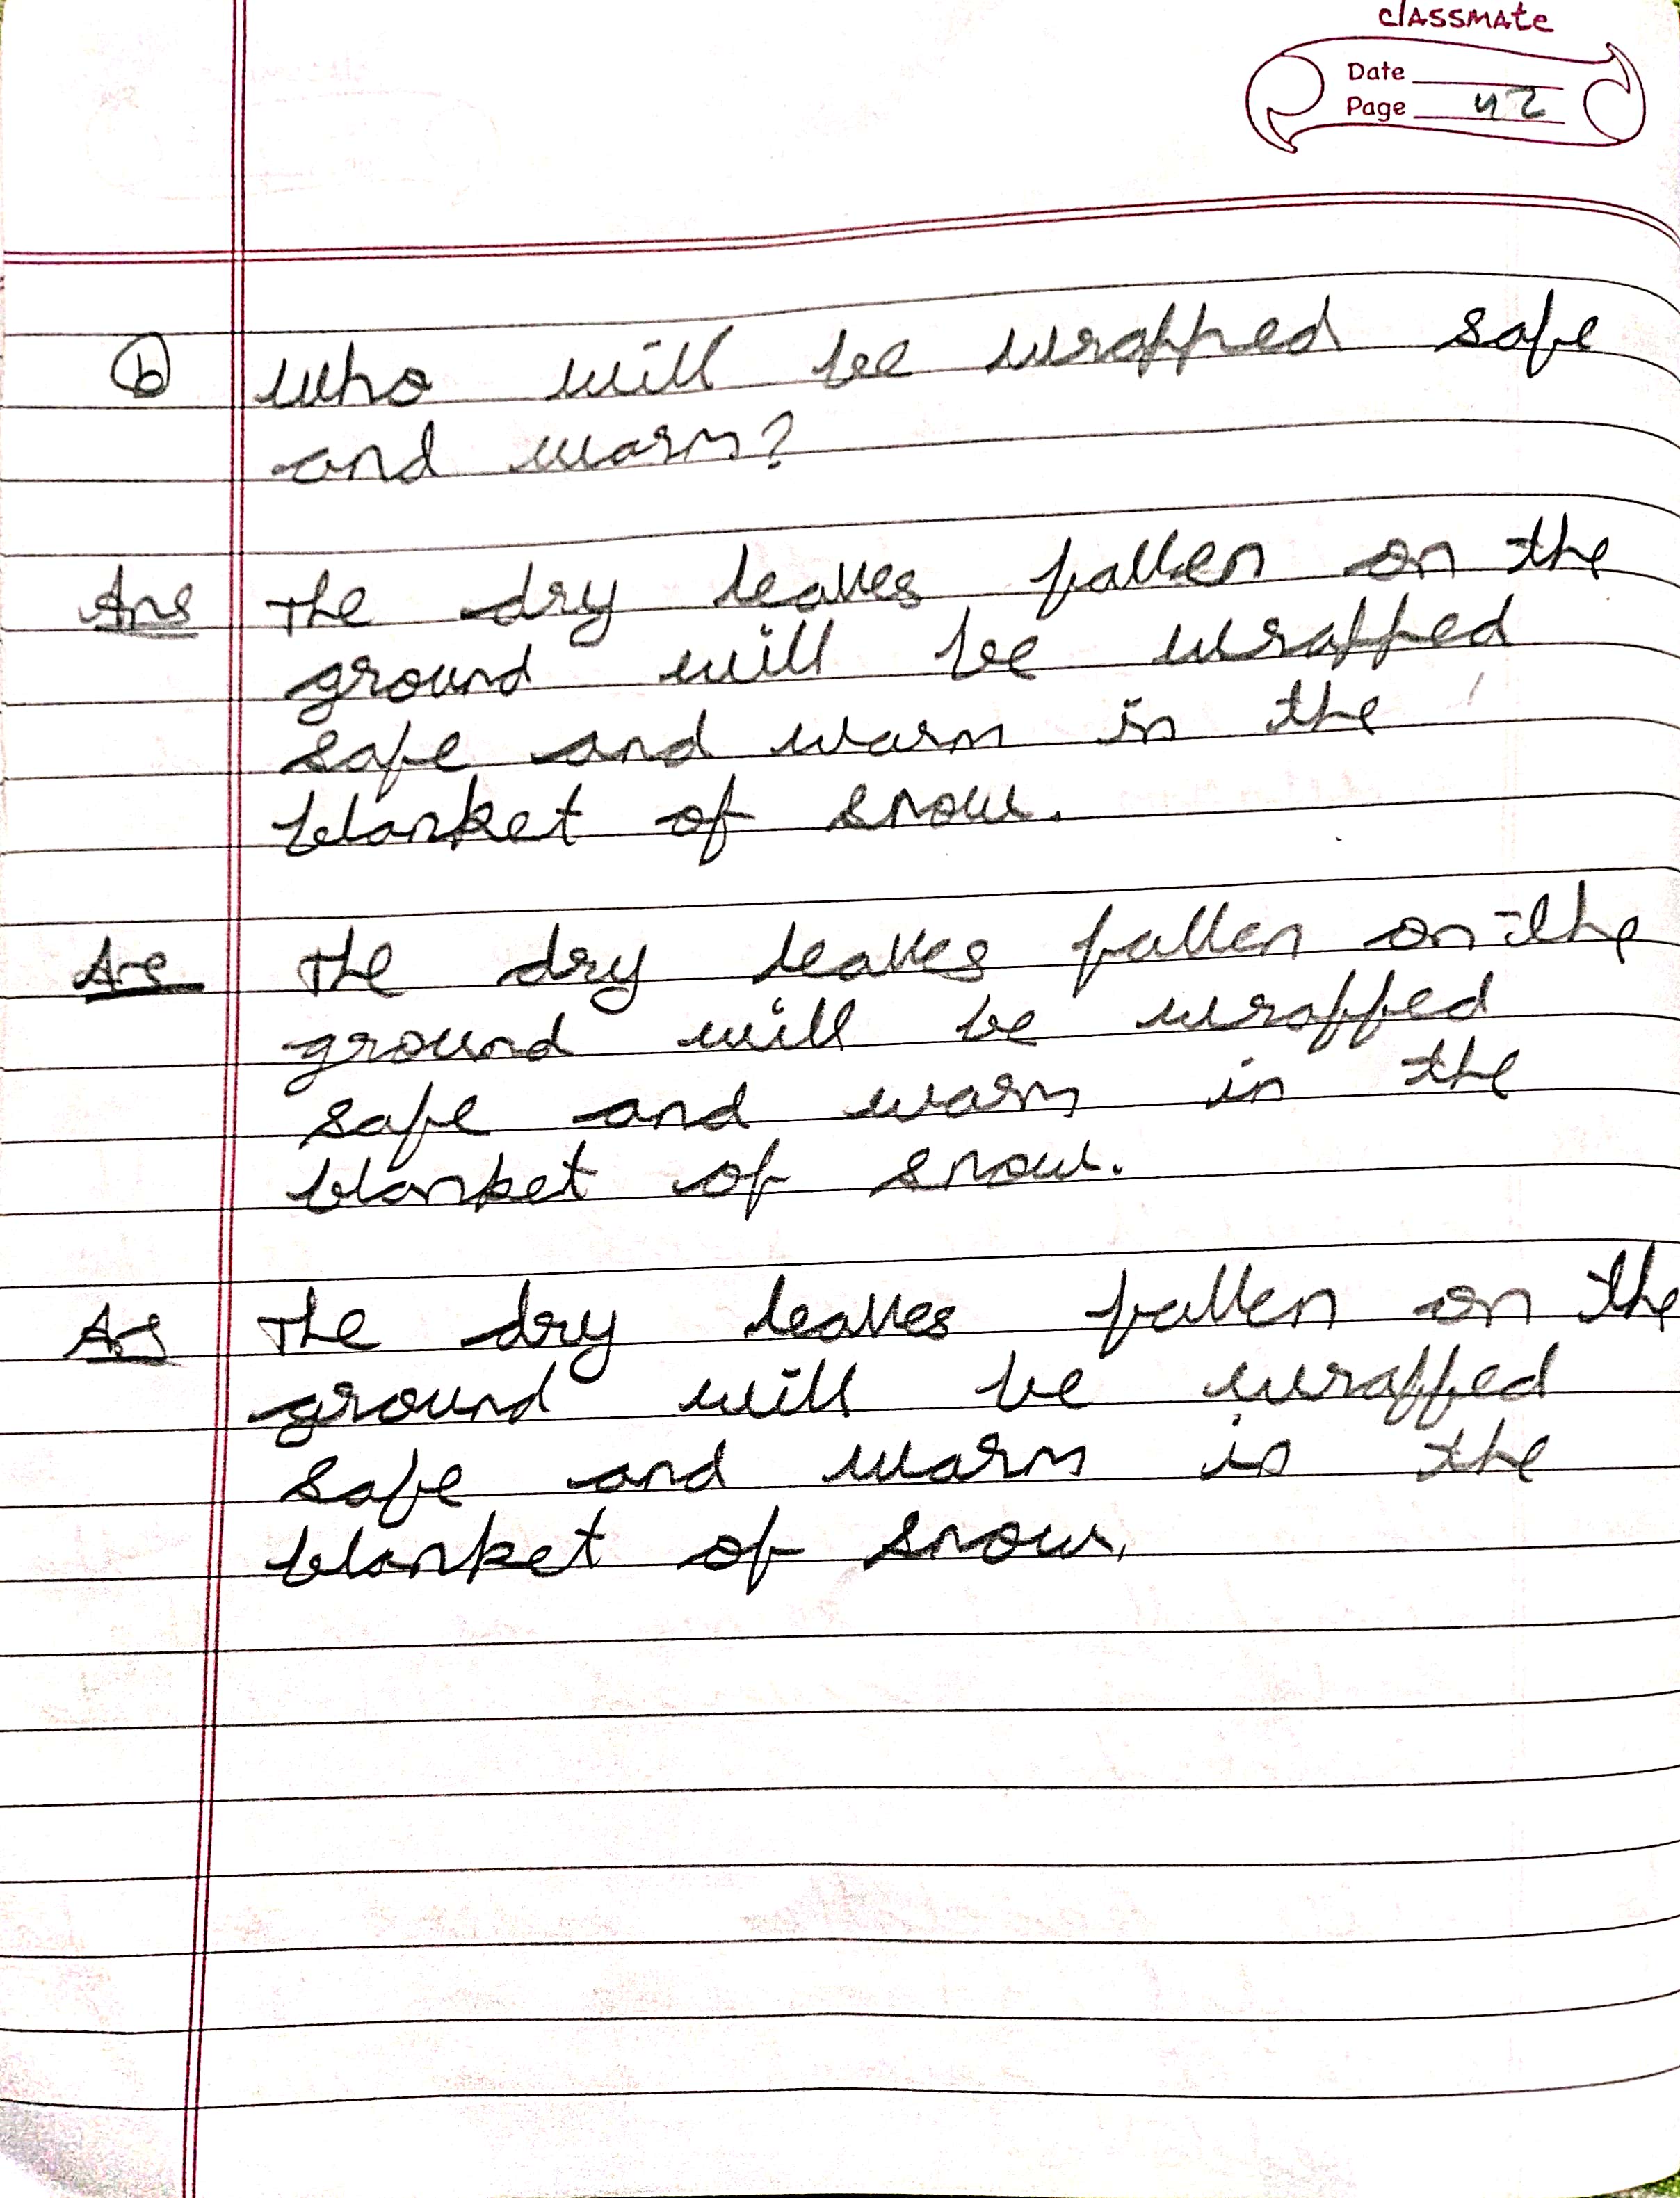 classmate
Date
Page 42
(b) Who will be wrapped safe
and warm?
Ans The dry leaves fallen on the
ground will be wrapped
safe and warm in the
blanket of snow.
Ans The dry leaves fallen on the
ground will be wrapped
safe and warm in the
blanket of snow.
Ans The dry leaves fallen on the
ground will be wrapped
safe and warm in the
blanket of snow.